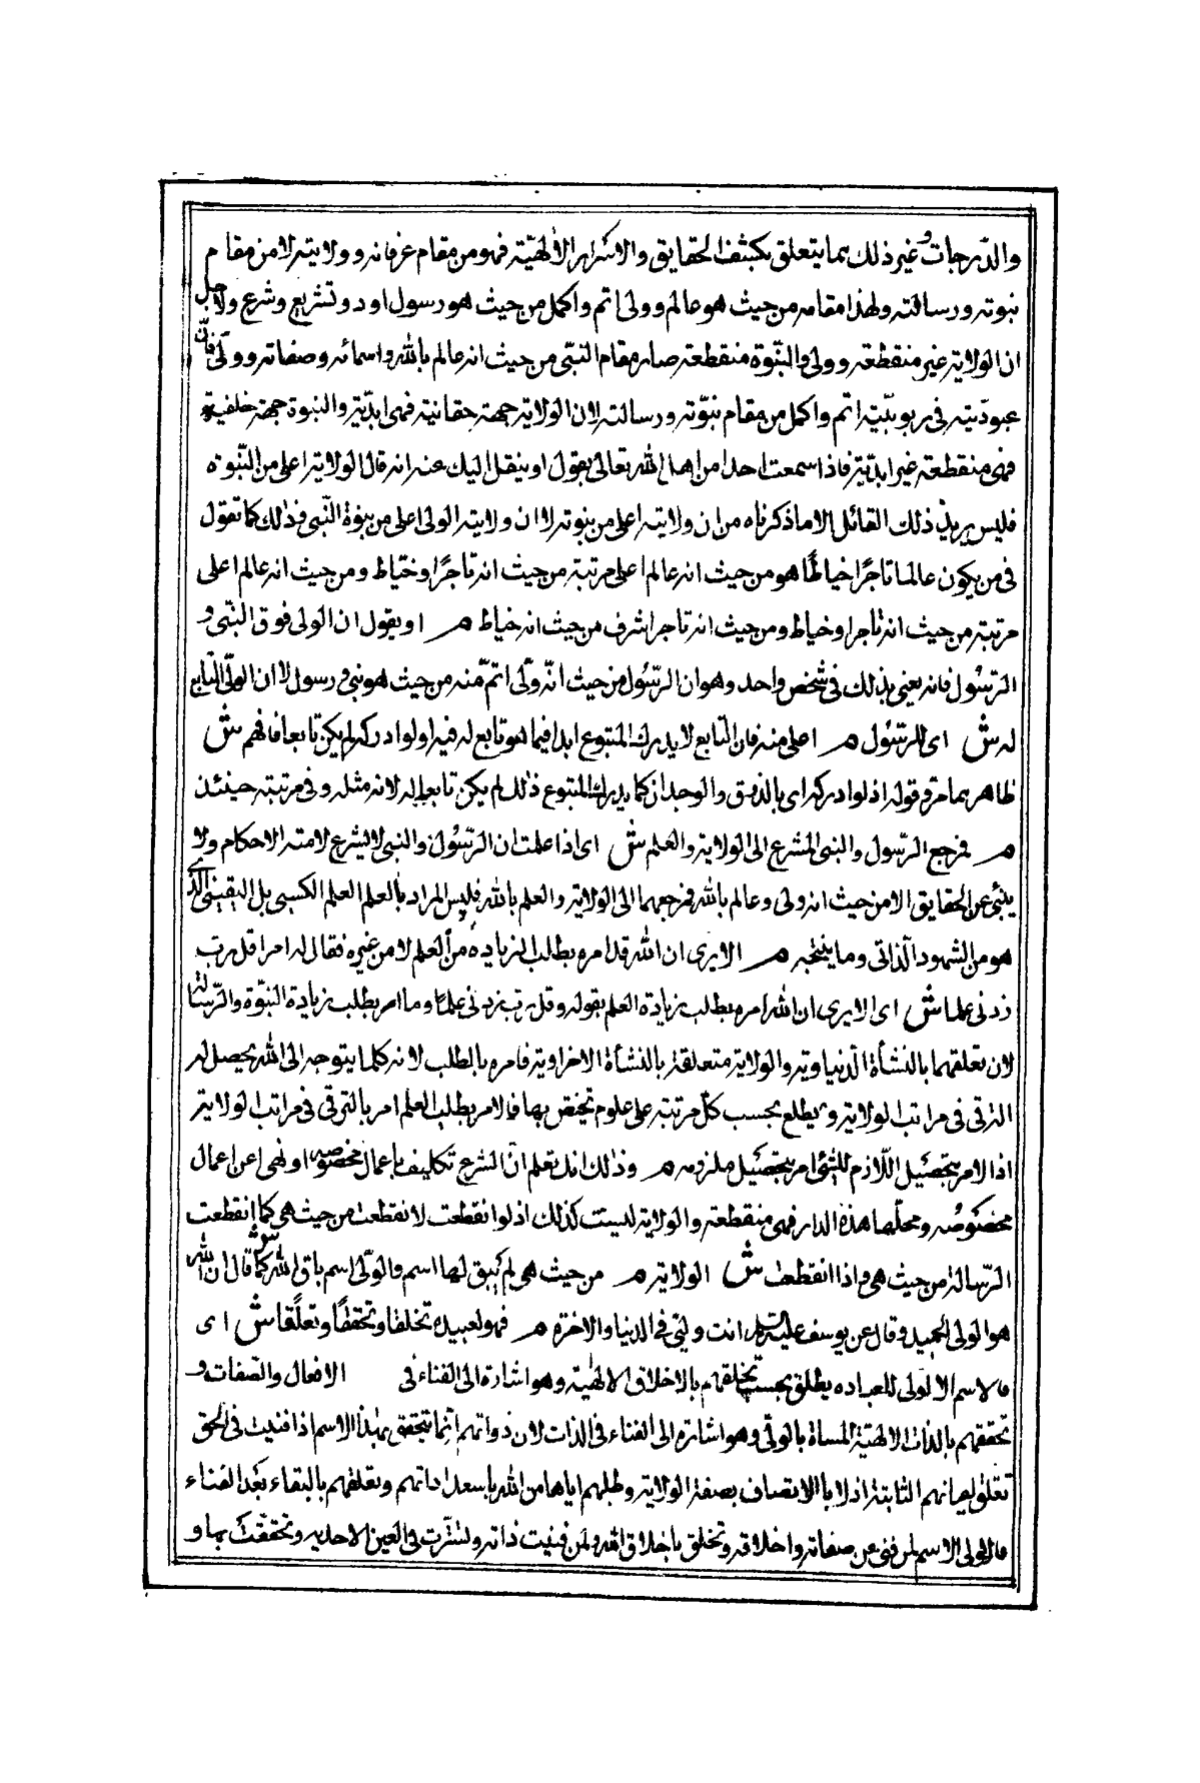 والدّرجات وغير ذلك بما يتعلق بكشف الحقايق والاسرار الالهيّة فهو من مقام عرفانه وولايته لا من مقام
نبوته ورسالته ولهذا مقامه من حيث هو عالم وولى اتم واكمل من حيث هو رسول او ذو تشريع وشرع ولاجل
ان الولاية غير منقطعة وولى والنبّوة منقطعة صار مقام النبّى من حيث انه عالم بالله واسمائه وصفاته وولّى فانّ
عبوديّته فى ربوبيّته اتم واكمل من مقام نبوّته ورسالته لان الولاية جهة حقانية فهى ابديّة والنبوة جهة خلفية
فهى منقطعة غير ابديّة فاذا سمعت احدا من اهل الله تعالى يقول او ينقل اليك عنه انه قال الولاية اعلى من النبّوة
فليس يريد ذلك القائل الا ما ذكرناه من ان ولايته اعلى من نبوته لا ان ولاية الولى اعلى من نبوة النّبى فذلك كما تقول
فى من يكون عالما تاجرًا خياطًا هو من حيث انه عالم اعلى مرتبة من حيث انه تاجرًا وخياط ومن حيث انه عالم اعلى
مرتبة من حيث انه تاجر او خياط ومن حيث انه تاجر اشرف من حيث انه خياط م او يقول ان الولى فوق النبّى و
الرّسُول فانه يعنى بذلك فى شخص واحد وهو ان الرسُول من حيث انّه ولّى اتمّ منه من حيث هو نبى ورسول لا ان الولّى التّابع
له ش اى للرسُول م اعلى منه فان التابع لا يدرك المتبوع ابدا فيما هو تابع له فيه اذ لو ادركه لم يكن تابعا فافهم ش
ظاهر بما مر وقوله اذ لو ادركه اى بالذوق والوجدان كما يدرك المتبوع ذلك لم يكن تابعا له لانه مثله وفى مرتبته حينئذ
م فمرجع الرّسول والنبى المشرع الى الولاية والعلم ش اى اذا علمت ان الرّسُول والنبى لا يشرع لامته الاحكام ولا
ينبئ عن الحقايق الا من حيث انه ولى وعالم بالله فمرجعهما الى الولاية والعلم بالله فليس المراد بالعلم العلم الكسبى بل اليقينى الذى
هو من الشهود الذّاتى وما ينتجه م الا يرى ان الله قد امره بطلب الزيادة من العلم لا من غيره فقال له امرا قل رب
زدنى علما ش اى الا يرى ان الله امره بطلب زيادة العلم بقوله وقل رب زدنى علمًا وما امر بطلب زيادة النبّوة والرّسالة
لان تعلقهما بالنشأة الدّنياوية والولاية متعلقة بالنشأة الاخراوية فامره بالطلب لانه كلما يتوجه الى الله يحصل له
الترقى فى مراتب الولاية ويطلع بحسب كلّ مرتبة على علوم تختص بها فالامر بطلب العلم امر بالترقى فى مراتب الولاية
اذ الامر بتحصيل اللّازم للشئ امر بتحصيل ملزومه م وذلك انك تعلم انّ الشرع تكليف باعمال مخصوصه او نهى عن اعمال
مخصوصُه ومحلّها هذه الدار فهى منقطعة والولاية ليست كذلك اذ لو انقطعت لانقطعت من حيث هى كما انقطعت
الرّسالة من حيث هى واذا انقطعت ش الولاية م من حيث هى لم يبق لها اسم والولّى اسم باق لله ش كما قال ان الله
هو الولى الحميد وقال عن يوسف عليه السلام انت وليّى فى الدنيا والاخرة م فهو لعبيده تخلقا وتحققًا وتعلّقا ش اى
فالاسم الا الولى للعباده يطلق بحسب تخلقهم بالاخلاق الالهيّة وهو اشارة الى الفناء فى الافعال والصّفات و
تحققهم بالذات الالهيّة المسماة بالولّى وهو اشارة الى الفناء فى الذات لان ذواتهم انّما تتحقق بهذا الاسم اذا فنيت فى الحق
تعلق اعيانهم الثابتة ازلا بالاتصاف بصفة الولاية وطلبهم اياها من الله باستعداداتهم وتعلقهم بالبقاء بعد الفناء
فالولى الاسم لمن فنى عن صفاته واخلاقه وتخلق باخلاق الله ولمن فنيت ذاته وتسترت فى العين الاحديه وتحققت بها و